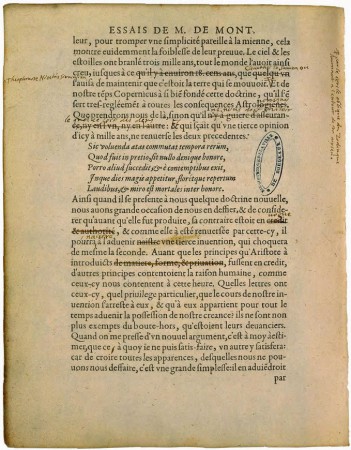 ESSAIS DE M. DE MONT.
leur, pour tromper vne simplicité pareille à la mienne, cela
montre euidemment la foiblesse de leur preuue. Le ciel & les
estoilles ont branlé trois mille ans, tout le monde l'auoit ainsi
creu, iusques à ce qu'il y a enuiron 18. cens ans, que quelqu'vn
s'auisa de maintenir que c'estoit la terre qui se mouuoit. Et de
nostre téps Copernicus à si bien fondé cette doctrine, qu'il s'é
sert tres-regléemét à toutes les consequences Astrologiénes.
Que prendrons nous de là, sinon qu'il
& qui sçait qu'vne tierce opinion
d'icy à mille ans, ne renuerse les deux precedentes.
Sic voluenda ætas commutat tempora rerum,
Quod fuit in pretio, fit nullo denique honore,
Porro aliud succedit, & è contemptibus exit,
Inque dies magis appetitur, floretque repertum
Laudibus, & miro est mortales inter honore.
Ainsi quand il se presente à nous quelque doctrine nouuelle,
nous auons grande occasion de nous en deffier, & de conside-
rer qu'auant qu'elle fut produite, sa contraire estoit en credit
& authorité, & comme elle à esté renuersée par cette-cy, il
pourra à l'aduenir naistre vne tierce inuention, qui choquera
de mesme la seconde. Auant que les principes qu'Aristote à
introduicts de matiere, forme, & priuation, fussent en credit,
d'autres principes contentoient la raison humaine, comme
ceux-cy nous contentent à cette heure. Quelles lettres ont
ceux-cy, quel priuilege particulier, que le cours de nostre in-
uention s'arreste à eux, & qu'à eux appartient pour tout le
temps aduenir la possession de nostre creance? ils ne sont non
plus exempts du boute-hors, qu'estoient leurs deuanciers.
Quand on me presse d'vn nouuel argument, c'est à moy à esti-
mer, que ce, à quoy ie ne puis satis-faire, vn autre y satisfera:
car de croire toutes les apparences, desquelles nous ne pou-
uons nous deffaire, c'est vne grande simplesse: il en aduiédroit
par